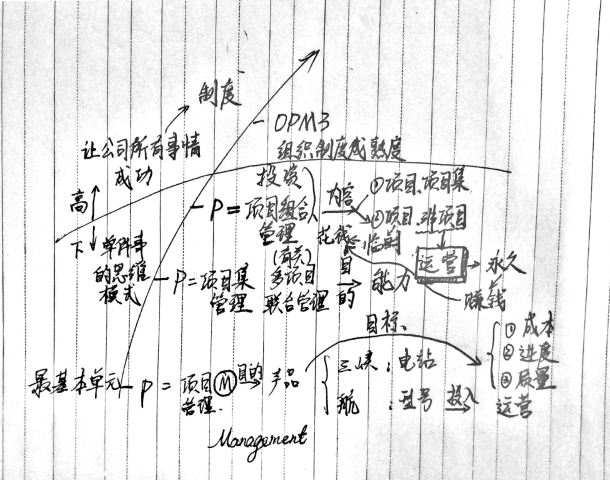 制度
OPM3
让公司所有事情
成功
组织制度成熟度
高
下
单件事
的思维
模式
投资
P = 项目组合
管理
内容
花钱
①项目、项目集
②项目、非项目
临时
运营
永久
赚钱
P = 项目集
管理
(有关)
多项目
联合管理
目
的
能力
目标、
最基本单元
P = 项目
管理.
M
目的
产品
三峡:电站
航:型号
投入
运营
①成本
②进度
③质量
Management